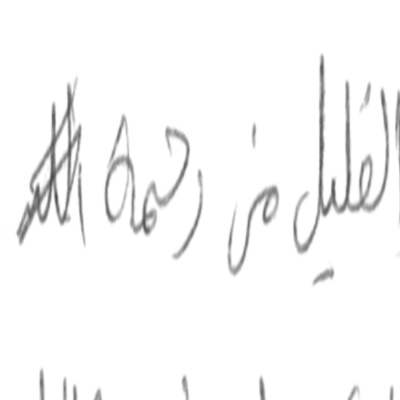 القليل من رحمة الله